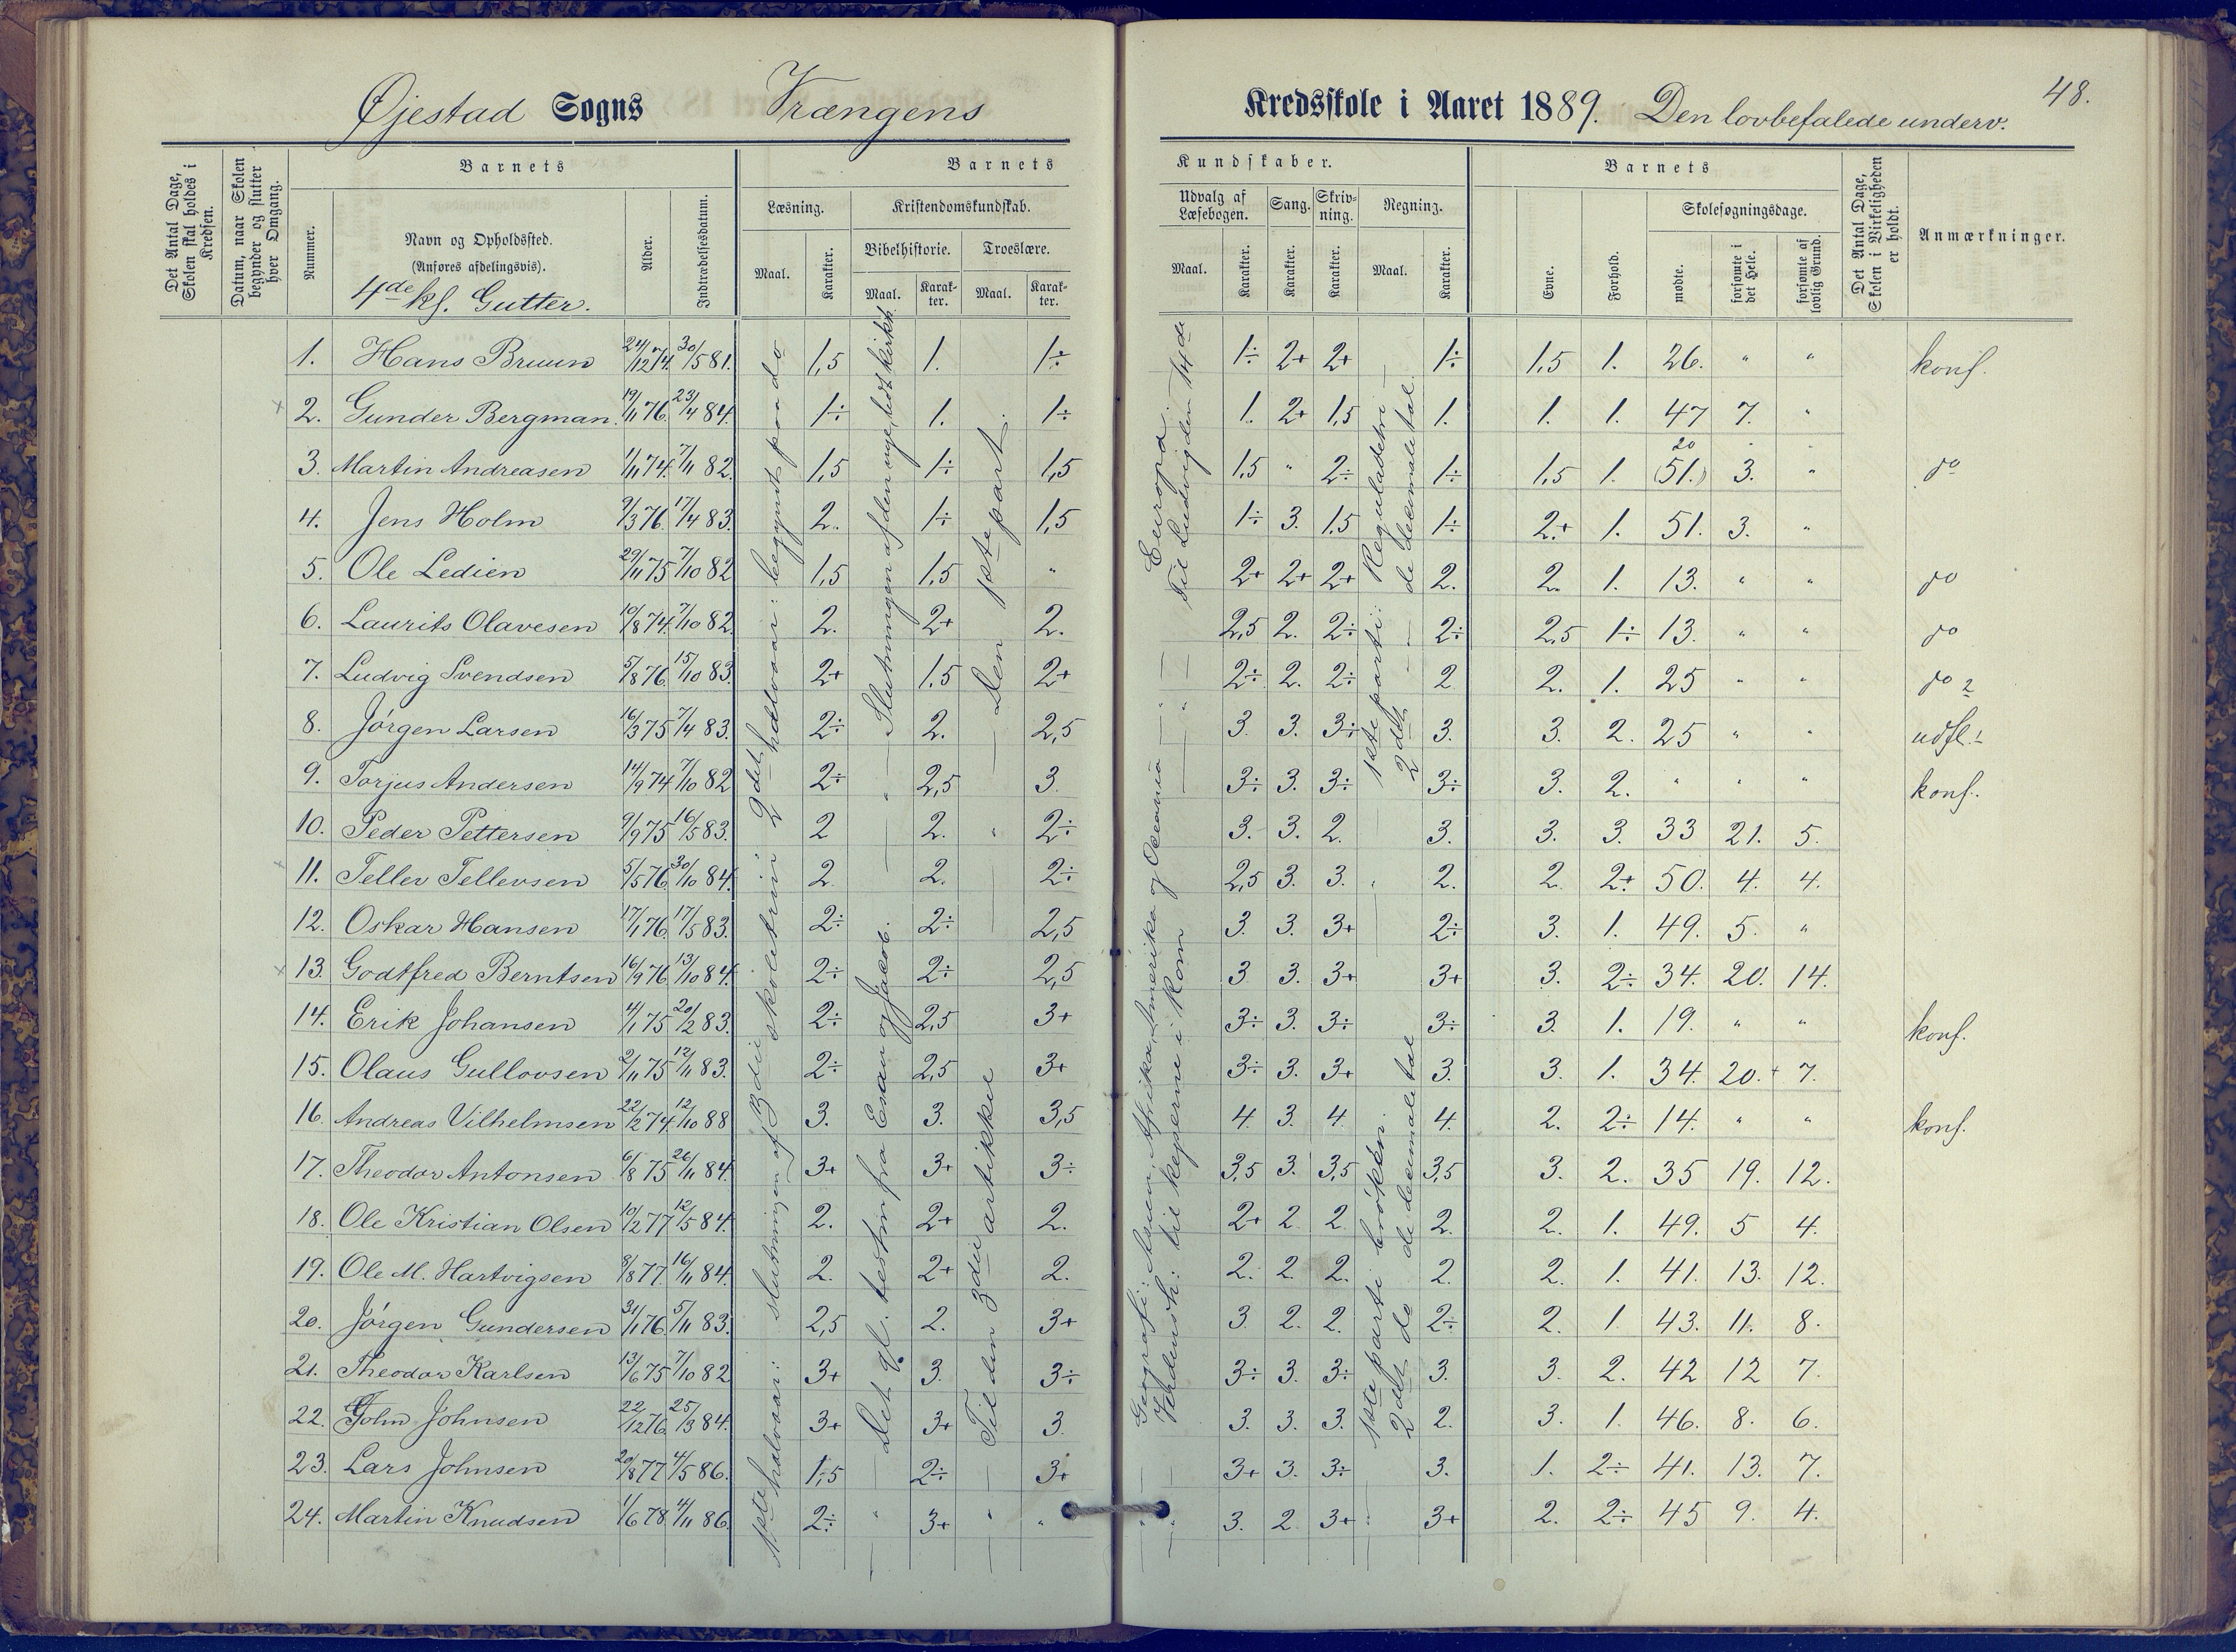 Øjestad Sogns Vrængens Kredsskole i Aaret 1889. Den lovbefalede underv. 48.
Det Antal Dage, Skolen skal holdes i Kredsen.
Datum, naar Skolen begynder og slutter hver Omgang.
Nummer.
Barnets
Navn og Opholdssted.
(Anføres afdelingsvis).
4de kl. Gutter.
Alder.
Indtrædelsesdatum.
Barnets Kundskaber.
Læsning.
Maal. Karakter.
Kristendomskundskab.
Bibelhistorie. Troeslære.
Maal. Karakter. Maal. Karakter.
Udvalg af Læsebogen. Sang. Skrivning. Regning.
Maal. Karakter. Karakter. Karakter. Maal. Karakter.
Barnets
Evne. Forhold.
Skolesøgningsdage.
mødte. forsømte i det Hele. forsømte af lovlig Grund.
Det Antal Dage, Skolen i Virkeligheden er holdt.
Anmærkninger.
1. Hans Bruun 24/12 74. 30/5 81. 1,5 1. 1÷ 1÷ 2+ 2+ 1÷ 1,5 1. 26. " " konf.
2. Gunder Bergman. 19/11 76. 23/4 84. 1÷ 1. 1÷ 1. 2+ 1,5 1. 1. 1. 47 7. "
3. Martin Andreasen 1/11 74. 7/11 82. 1,5 1÷ 1,5 1,5 " 2÷ 1÷ 1,5 1. 20 (51.) 3. " do
4. Jens Holm 9/3 76. 17/4 83. 2. 1÷ 1,5 1÷ 3. 1,5 1÷ 2+ 1. 51. 3. "
5. Ole Ledien 29/11 75 7/10 82 1,5 1,5 " 2+ 2+ 2+ 2. 2. 1. 13. " " do
6. Laurits Olavesen 10/8 74. 7/10 82. 2. 2+ 2. 2,5 2. 2÷ 2÷ 2,5 1÷ 13. " " do
7. Ludvig Svendsen 5/8 76. 15/10 83. 2+ 1,5 2+ 2÷ 2. 2÷ 2 2. 1. 25 " " do
8. Jørgen Larsen 16/3 75 7/4 83. 2÷ 2. 2,5 3. 3. 3÷ 3. 3. 2. 25 " " udfl.
9. Torjus Andersen 14/9 74 7/10 82 2÷ 2,5 3. 3÷ 3. 3÷ 3÷ 3. 2. " " " konf.
10. Peder Pettersen 9/9 75 16/5 83. 2 2. 2÷ 3. 3. 2. 3. 3. 3. 33 21. 5.
11. Tellev Tellevsen 5/5 76 30/10 84. 2. 2. 2÷ 2,5 3. 3. 2. 2. 2+ 50. 4. 4.
12. Oskar Hansen 17/1 76. 17/5 83. 2÷ 2÷ 2,5 3. 3. 3+ 2÷ 3. 1. 49. 5. "
13. Godtfred Berntsen 16/9 76 13/10 84. 2÷ 2÷ 2,5 3 3. 3+ 3+ 3. 2÷ 34. 20. 14.
14. Erik Johansen 4/1 75 20/2 83. 2÷ 2,5 3+ 3÷ 3. 3÷ 3÷ 3. 1. 19. " " konf.
15. Olaus Gullovsen 2/11 75 12/11 83. 2÷ 2,5 3+ 3÷ 3. 3+ 3. 3. 1. 34. 20. 7.
16. Andreas Vilhelmsen 22/2 74. 12/10 88 3. 3. 3,5 4. 3. 4. 4. 2. 2÷ 14. " " konf.
17. Theodor Antonsen 6/8 75 26/11 84. 3+ 3+ 3÷ 3,5 3. 3,5 3,5 3. 2. 35 19. 12.
18. Ole Kristian Olsen 10/2 77 12/5 84. 2. 2+ 2. 2+ 2 2 2. 2. 1. 49. 5 4.
19. Ole M. Hartvigsen 9/8 77. 16/11 84. 2. 2+ 2. 2. 2. 2. 2. 2. 1. 41. 13. 12.
20. Jørgen Gundersen 31/1 76. 5/11 83. 2,5 2. 3+ 3 2. 2. 2÷ 2. 1 43. 11. 8.
21. Theodor Karlsen 13/6 75 7/10 82 3+ 3. 3÷ 3÷ 3. 3÷ 3. 3. 2. 42 12 7.
22. John Johnsen 22/12 76. 25/3 84. 3+ 3+ 3. 3. 3. 3. 2. 3. 1. 46. 8. 6.
23. Lars Johnsen 20/8 77 4/5 86. 1,5 2÷ 3+ 3+ 3. 3÷ 3. 1. 2÷ 41. 13. 7.
24. Martin Knudsen 1/6 78. 4/11 86. 2÷ 3+ " 3. 2 3+ 3+ 2. 2÷ 45 9. 4.
1ste halvaar: slutningen af 3die skoletrin
2det halvaar: begynt paa do
Det gl. testm fra Esau og Jacob.
Slutningen af den nye, lidt kirkh.
Til den 3die artikkel
Den 1ste part.
Geografi: Asien, Afrika, Amerika og Oceania
Europa.
Verdensh: til keiserne i Rom
Til Ludvig den 14de
1ste parti brøken.
2det do de decimale tal
1ste parti: Reguladetri
2det de decimale tal.